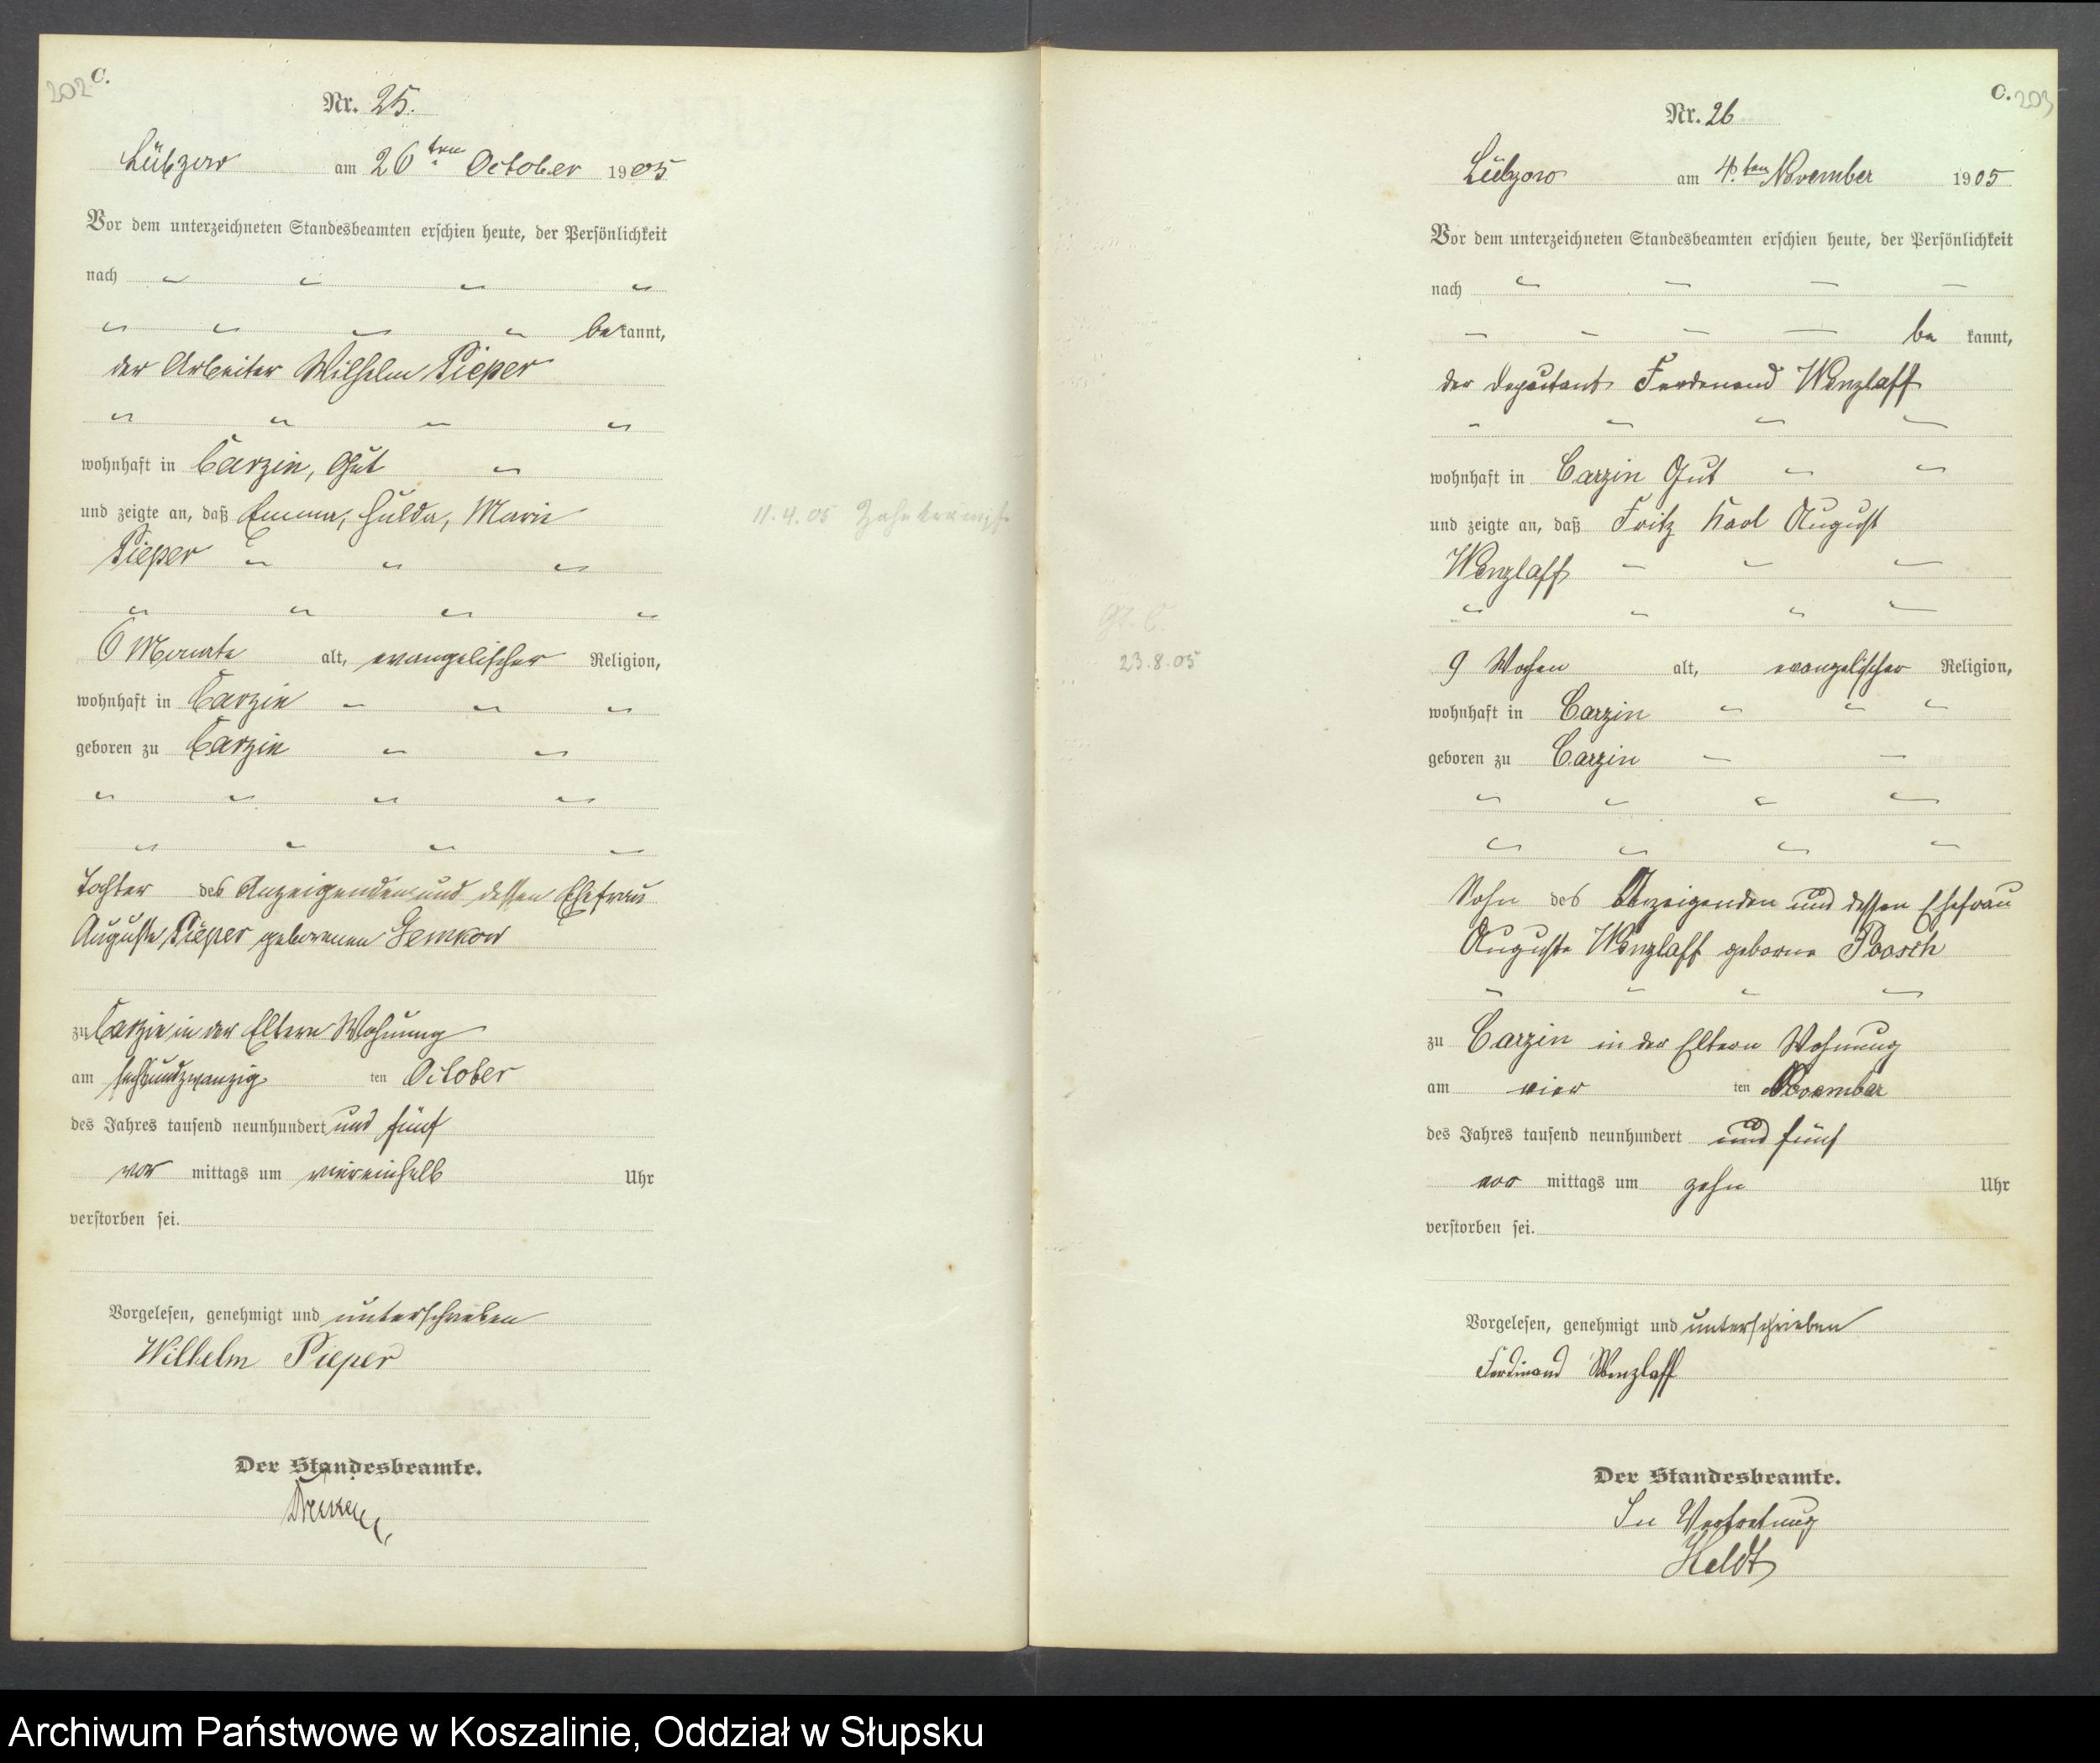 202 C.
Nr. 25.
Lübzow am 26ten October 1905
Vor dem unterzeichneten Standesbeamten erschien heute, der Persönlichkeit
nach
bekannt,
der Arbeiter Wilhelm Pieper
wohnhaft in Carzin, Gut
und zeigte an, daß Emma, Hulda, Marie
Pieper
6 Monate alt, evangelischer Religion,
wohnhaft in Carzin
geboren zu Carzin
Tochter des Anzeigenden und dessen Ehefrau
Auguste Pieper geborenen Gemkow
zu Carzin in der Eltern Wohnung
am sechsundzwanzig ten October
des Jahres tausend neunhundert und fünf
vor mittags um viereinhalb Uhr
verstorben sei.
Vorgelesen, genehmigt und unterschrieben
Wilhelm Pieper
Der Standesbeamte.
11.4.05 Zahnkrämpfe
C. 203
Nr. 26
Lübzow am 4.ten November 1905
Vor dem unterzeichneten Standesbeamten erschien heute, der Persönlichkeit
nach
be kannt,
der Deputant Ferdenand Wenzlaff
wohnhaft in Carzin Gut
und zeigte an, daß Fritz Karl August
Wenzlaff
9 Wochen alt, evangelischer Religion,
wohnhaft in Carzin
geboren zu Carzin
Sohn des Anzeigenden und dessen Ehefrau
Auguste Wenzlaff geborne Poosch
zu Carzin in der Eltern Wohnung
am vier ten November
des Jahres tausend neunhundert und fünf
vor mittags um zehn Uhr
verstorben sei.
Vorgelesen, genehmigt und unterschrieben
Ferdinand Wenzlaff
Der Standesbeamte.
In Vertretung
Heldt
23.8.05
Archiwum Państwowe w Koszalinie, Oddział w Słupsku